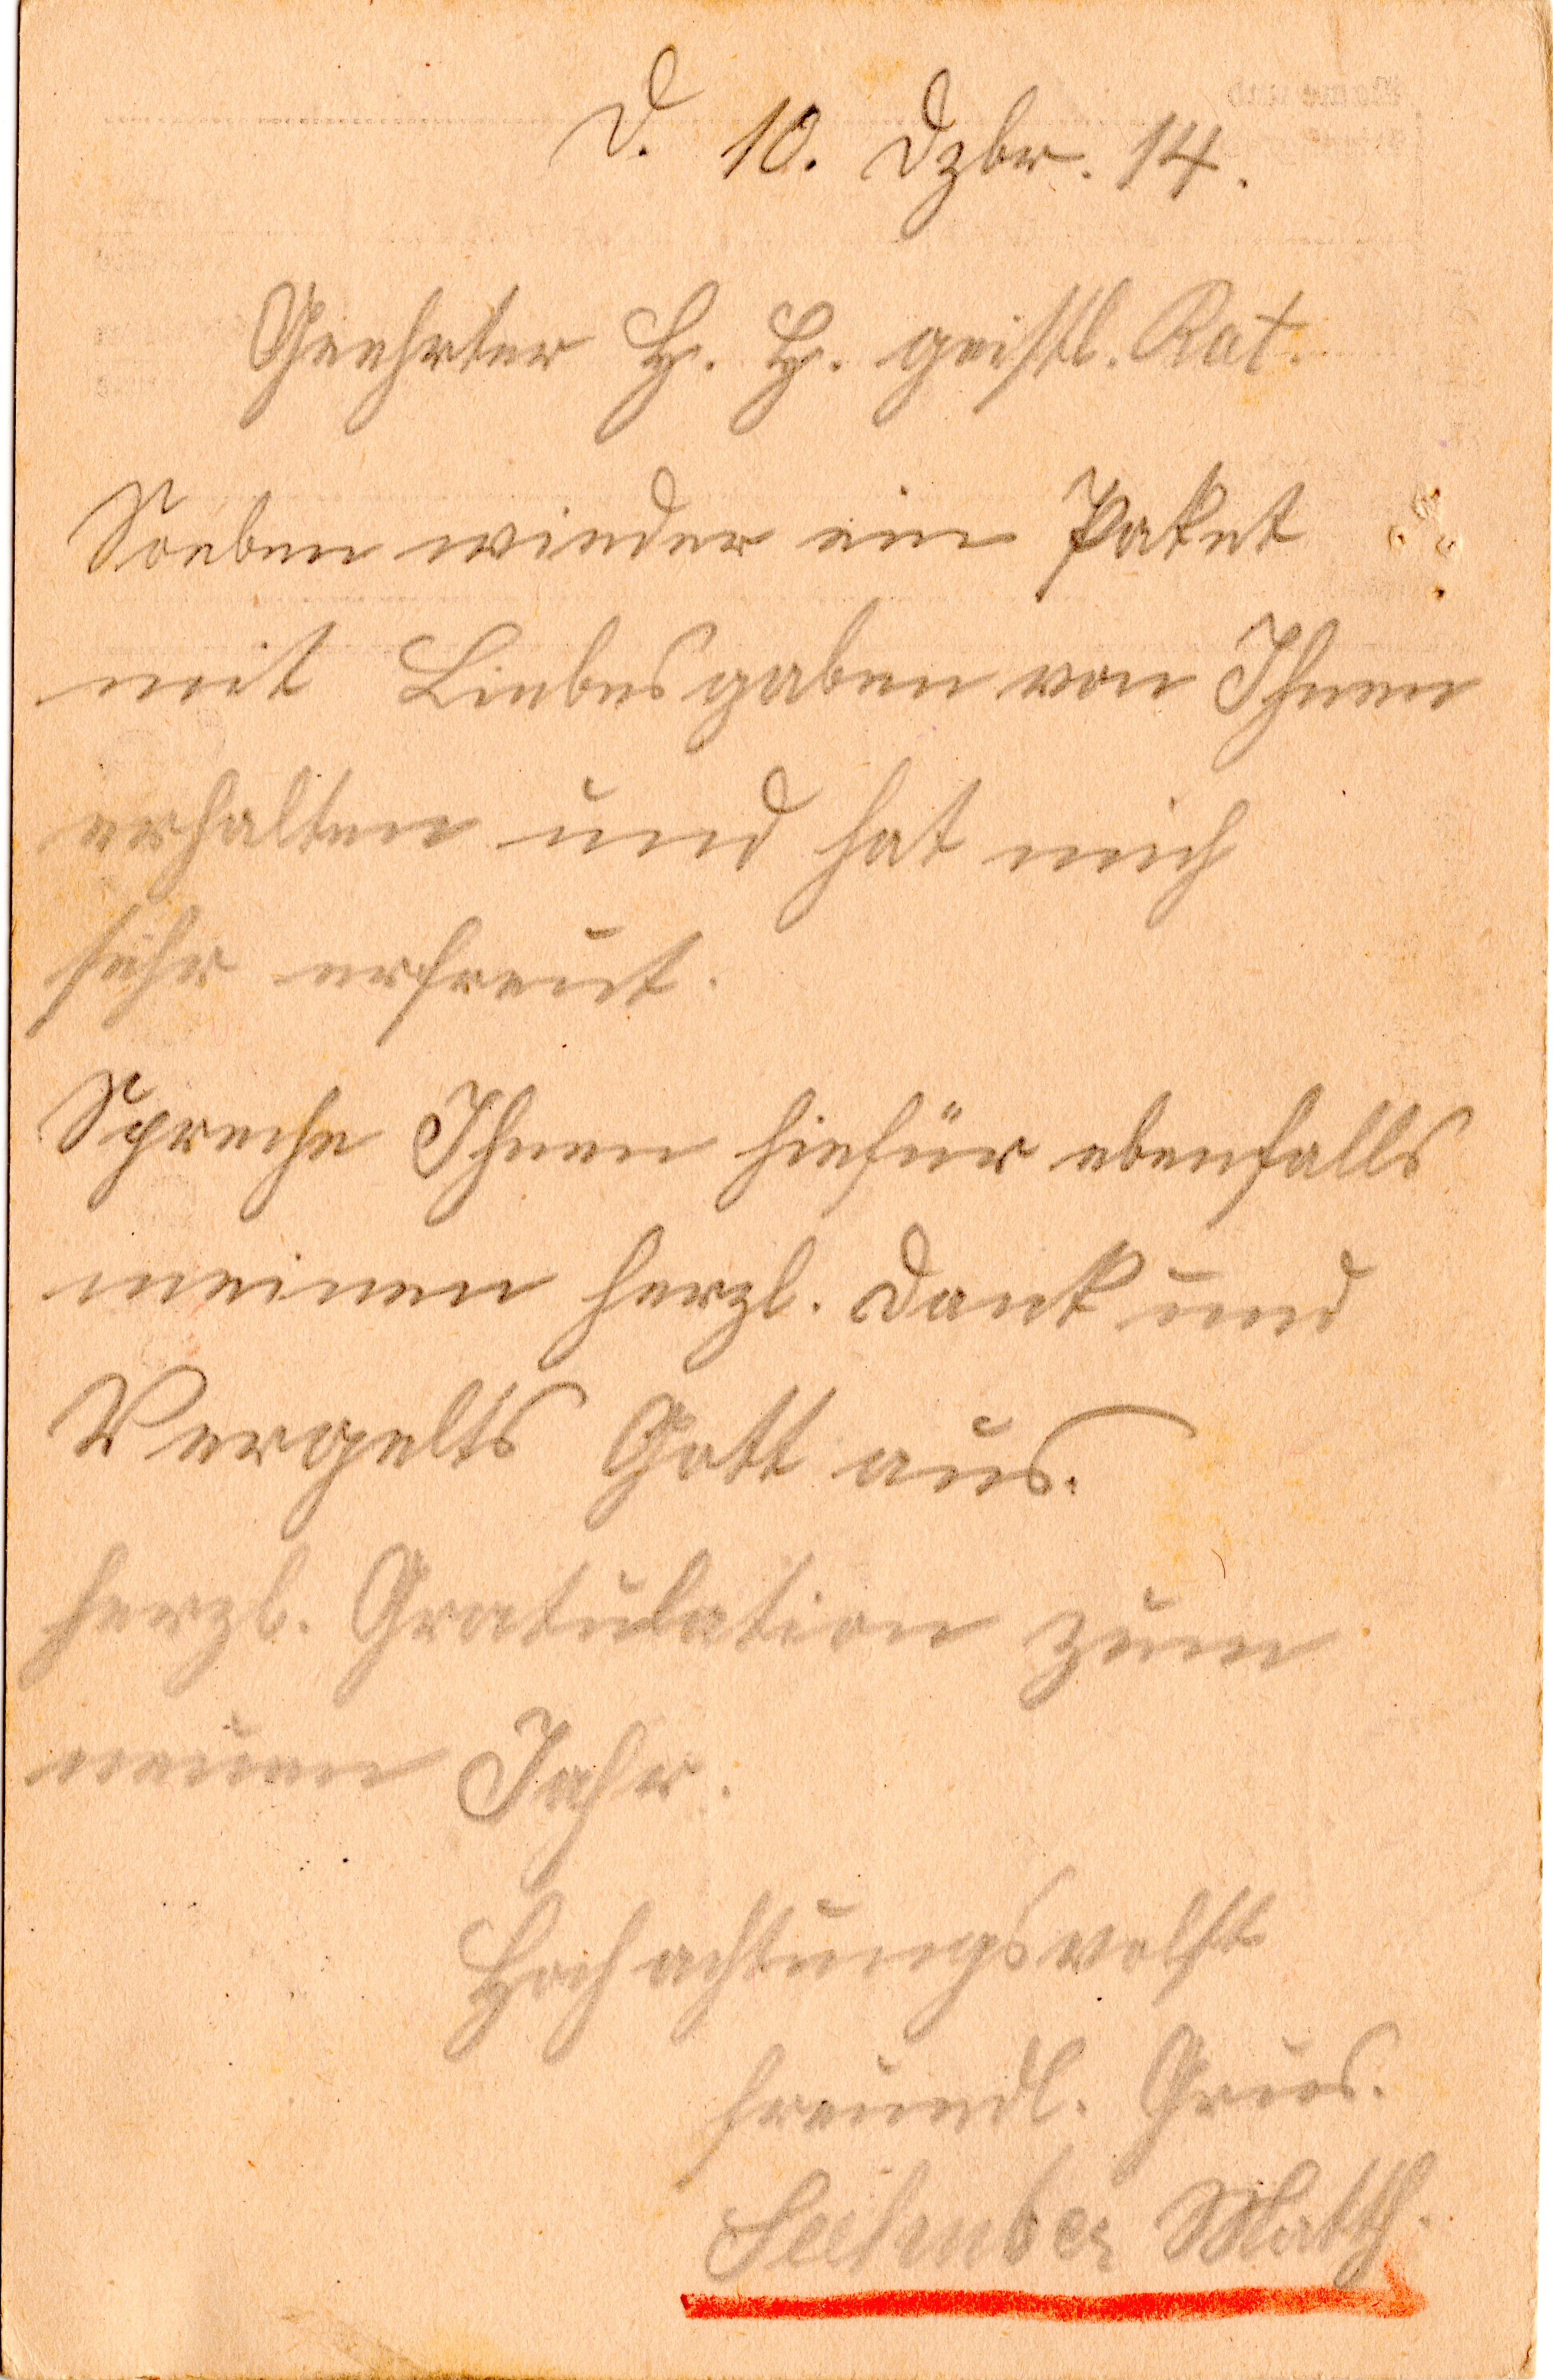 D. 10. Dzbr. 14.
Geehrter H. H. geistl. Rat.
Soeben wieder ein Paket
mit Liebesgaben von Ihnen
erhalten und hat mich
sehr erfreut.
Spreche Ihnen hiefür ebenfalls
meinen herzl. Dank und
Vergelts Gott aus.
herzl. Gratulation zum
neuen Jahr.
Hochachtungsvollst
freundl. Grus.
Seehuber Matth.